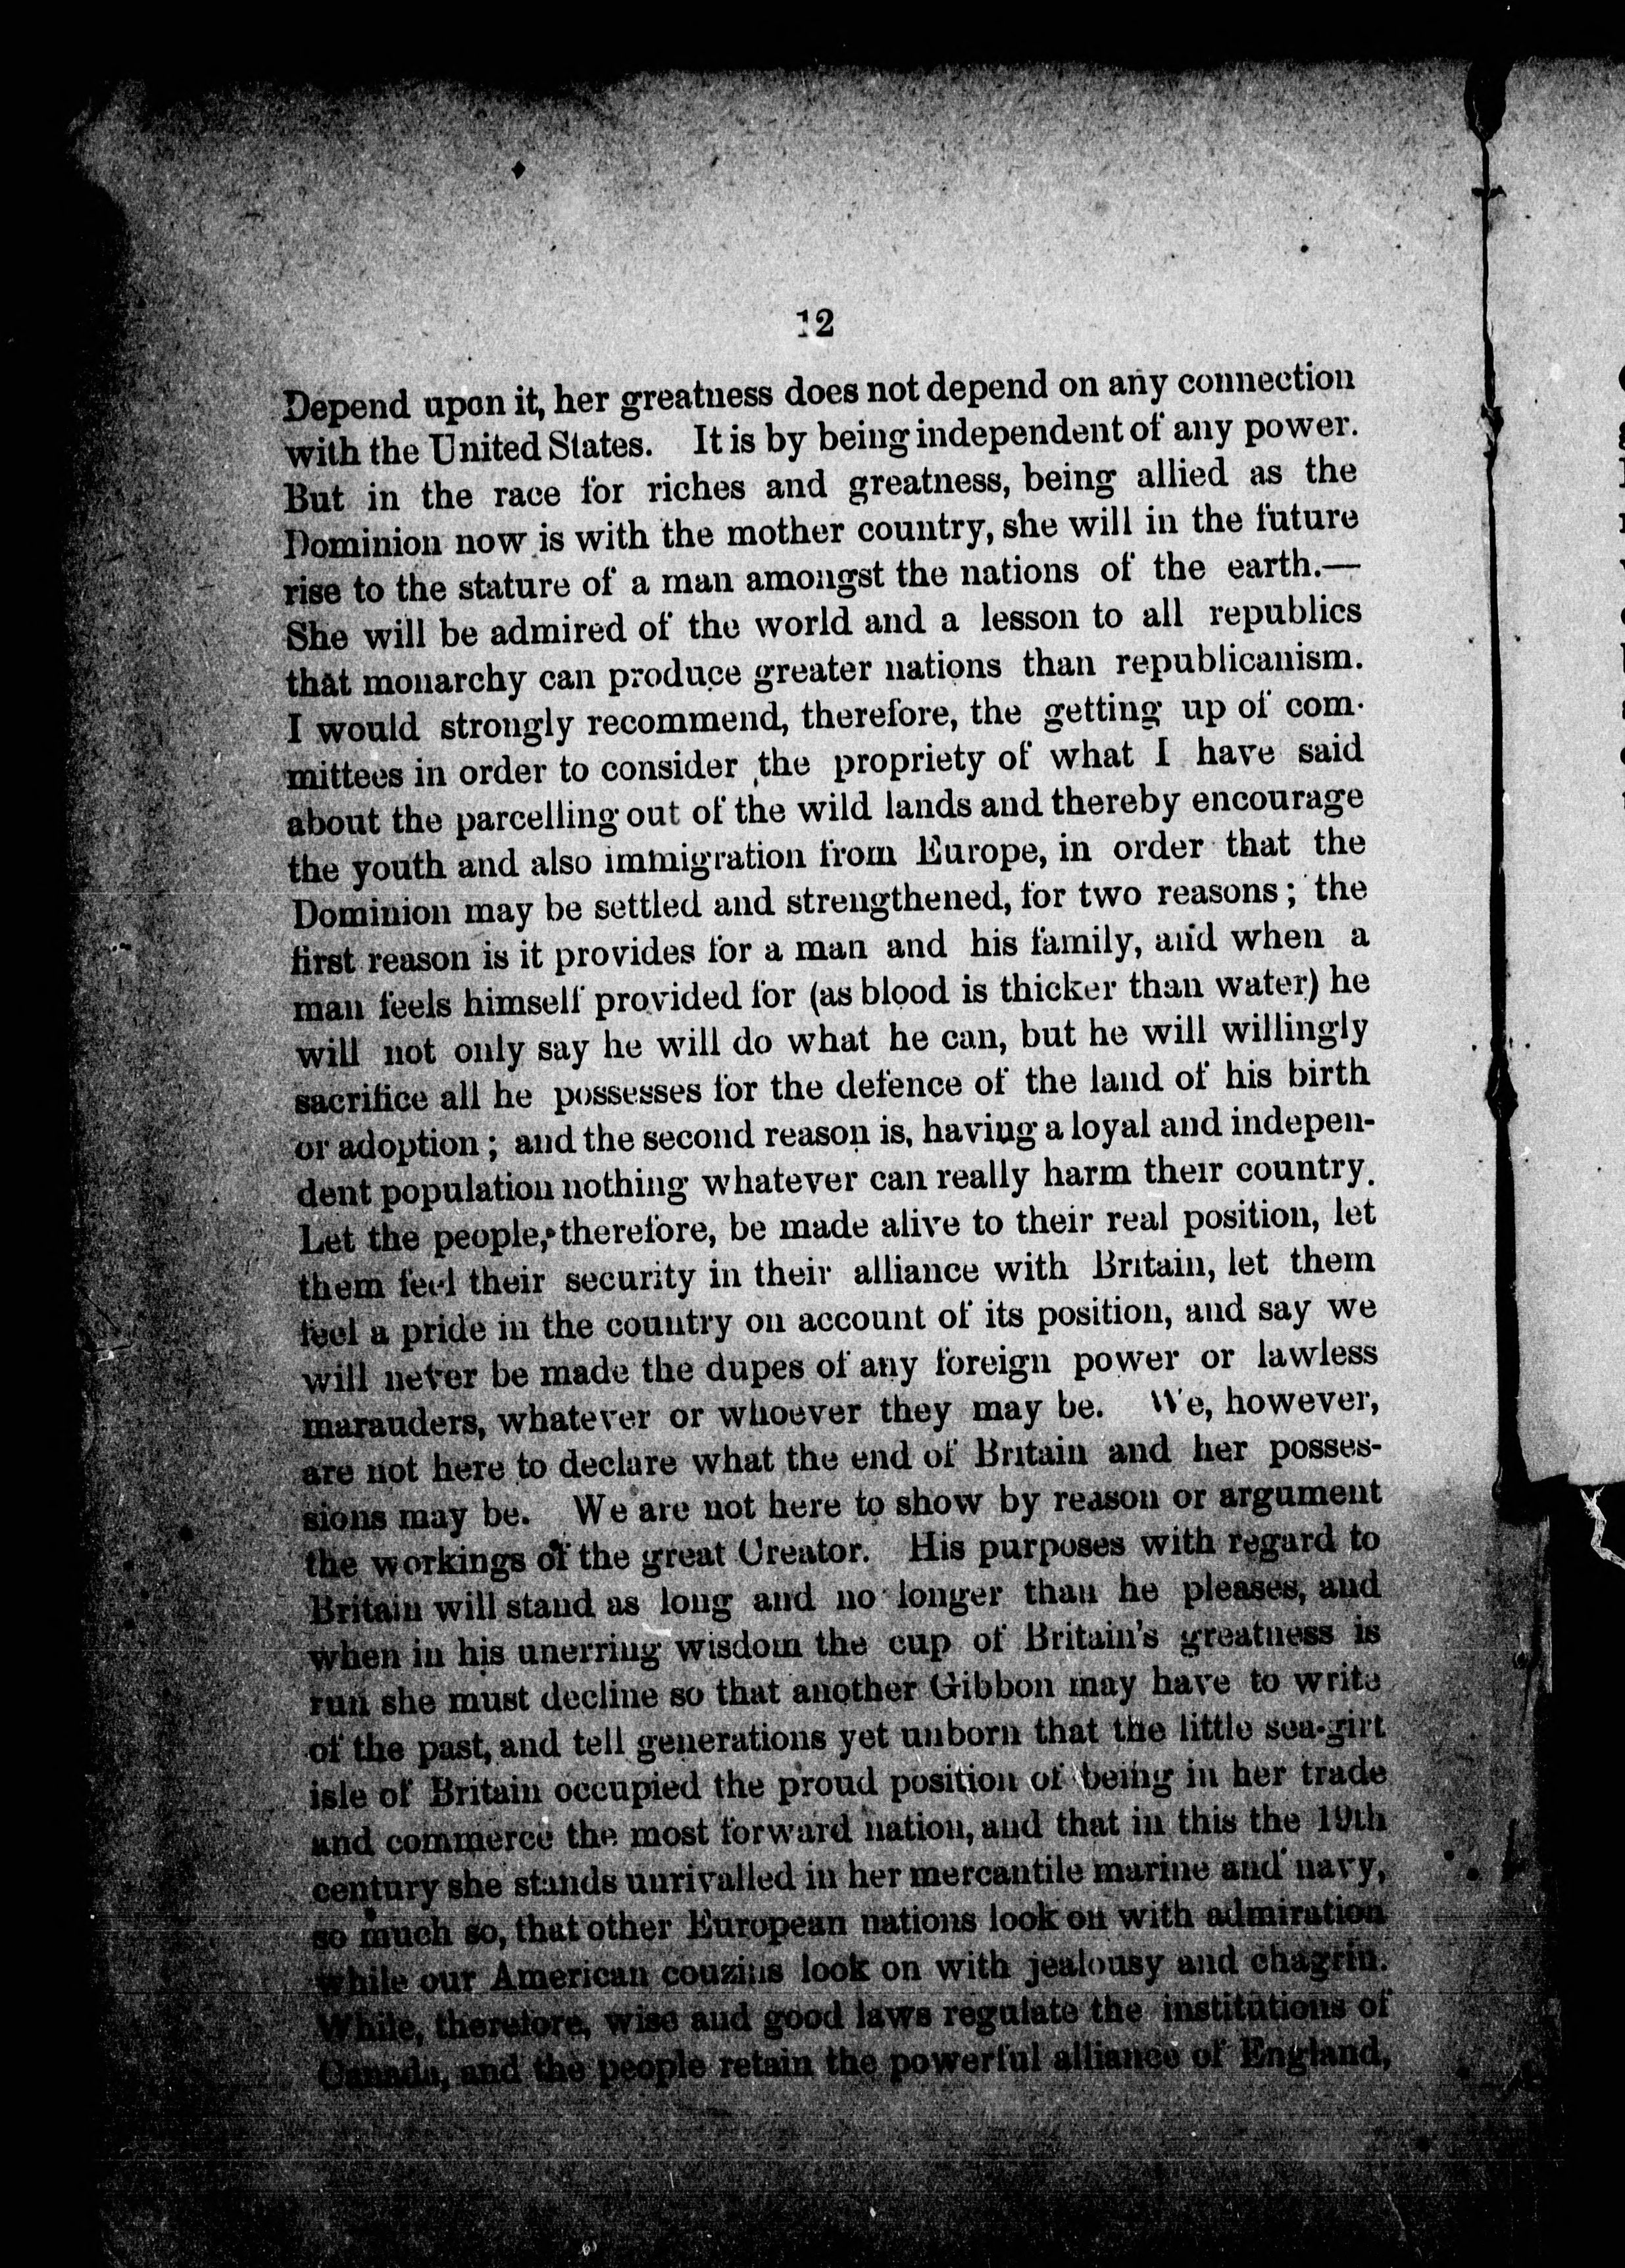 12
Depend upon it, her greatness does not depend on any connection
with the United States. It is by being independent of any power.
But in the race for riches and greatness, being allied as the
Dominion now is with the mother country, she will in the future
rise to the stature of a man amongst the nations of the earth.—
She will be admired of the world and a lesson to all republics
that monarchy can produce greater nations than republicanism.
I would strongly recommend, therefore, the getting up of com-
mittees in order to consider the propriety of what I have said
about the parcelling out of the wild lands and thereby encourage
the youth and also immigration from Europe, in order that the
Dominion may be settled and strengthened, for two reasons; the
first reason is it provides for a man and his family, and when a
man feels himself provided for (as blood is thicker than water) he
will not only say he will do what he can, but he will willingly
sacrifice all he possesses for the defence of the land of his birth
or adoption; and the second reason is, having a loyal and indepen-
dent population nothing whatever can really harm their country.
Let the people, therefore, be made alive to their real position, let
them feel their security in their alliance with Britain, let them
feel a pride in the country on account of its position, and say we
will never be made the dupes of any foreign power or lawless
marauders, whatever or whoever they may be. We, however,
are not here to declare what the end of Britain and her posses-
sions may be. We are not here to show by reason or argument
the workings of the great Creator. His purposes with regard to
Britain will stand as long and no longer than he pleases, and
when in his unerring wisdom the cup of Britain's greatness is
run she must decline so that another Gibbon may have to write
of the past, and tell generations yet unborn that the little sea-girt
isle of Britain occupied the proud position of being in her trade
and commerce the most forward nation, and that in this the 19th
century she stands unrivalled in her mercantile marine and navy,
so much so, that other European nations look on with admiration
while our American couzins look on with jealousy and chagrin.
While, therefore, wise and good laws regulate the institutions of
Canada, and the people retain the powerful alliance of England,